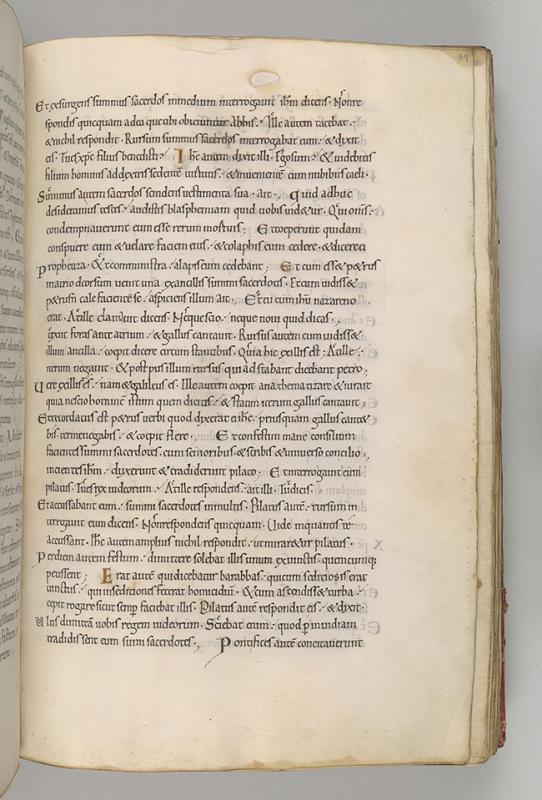 Et exsurgens summus sacerdos inmedium interrogauit ihm dicens. Nonre
spondis quicquam adea quetibi obiciuntur abhis. Ille autem tacebat.
& nichil respondit. Rursum summus sacerdos interrogabat eum. & dixit
ei. Tu es xpc filius benedicti. Ihc autem dixit illi. Ego sum. & uidebitis
filium hominis addextris sedente uirtutis. & uenientē cum nubibus caeli.
Summus autem sacerdos scindens uestimenta sua. ait. Quid adhuc
desideramus testes. audistis blasphemiam quid uobis uid&ur. Qui oms.
condempnauerunt eum esse reum mortis. Et coeperunt quidam
conspuere eum & uelare faciem eius. & colaphis eum cedere. & dicere ei
Prophetiza. & ministri alapis eum cedebant. Et cum ess& p&rus
inatrio deorsum uenit una ex ancillis summi sacerdotis. Et cum uidiss&
p&rum cale faciente se. aspiciens illum ait. Et tu cum ihu nazareno
eras. At ille dicens. Neque scio. neque noui quid dicas.
Exiit foras ante atrium. & gallus cantauit. Rursus autem cum uidiss&
illum ancilla. coepit dicere circum stantibus. Quia hic ex illis est. At ille
iterum negauit. & post pusillum rursus qui ad stabant dicebant petro.
Uere ex illis es. nam & galileus es. Ille autem coepit anathematizare & iurare
quia nescio hominē istum quem dicitis. & statim iterum gallus cantauit.
Et recordatus est p&rus uerbi quod dixerat ei ihc. priusquam gallus cant&
bis ter me negabis. & coepit flere. Et confestim mane consilium
facientes summi sacerdotes. cum senioribus & scribis & uniuerso concilio.
uincientes ihm. duxerunt & tradiderunt pilato. Et interrogauit eum
pilatus. Tu es rex iudeorum. At ille respondens. ait illi. Tu dicis.
Et accusabant eum. summi sacerdotes inmultis. Pilatus autē. rursum in
terrogauit eum dicens. Non respondes quicquam. Uide inquantis te
accusant. Ihc autem amplius nichil respondit. ut mirar&ur pilatus.
Per diem autem festum. dimittere solebat illis unum exuinctis. quemcumq;
petissent. Erat autē qui dicebatur barabbas. qui cum seditiosis erat
uinctus. qui inseditione fecerat homicidiū. & cum ascendiss& turba.
cepit rogare sicut semp faciebat illis. Pilatus autē respondit eis. & dixit.
Uultis dimittā uobis regem iudeorum. Sciebat enim. quod p inuidiam
tradidissent eum sūmi sacerdotes. Pontifices autē concitauerunt